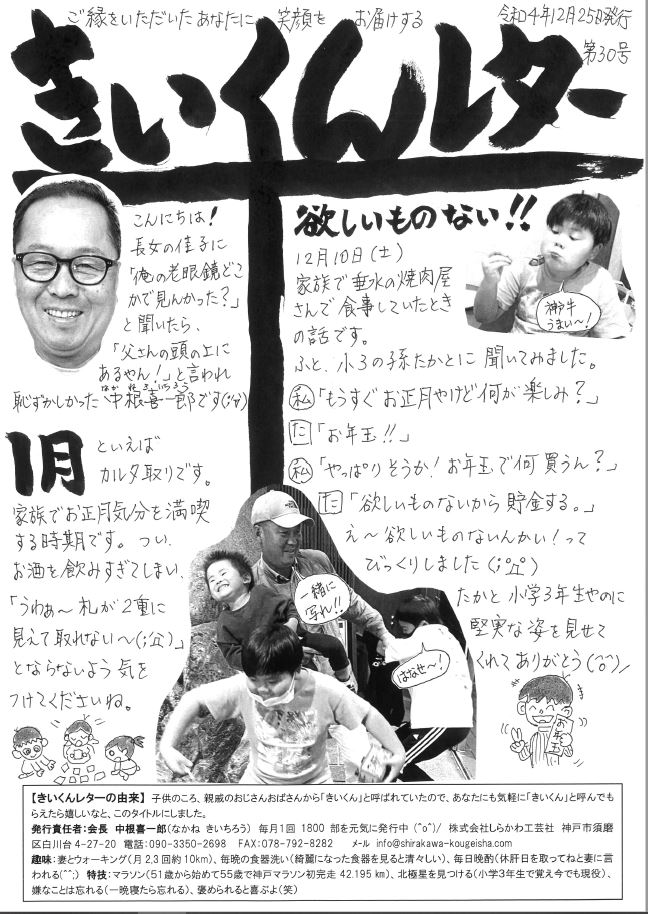 ご縁をいただいたあなたに 笑顔を お届けする
令和4年12月25日発行
第30号
きいくんレター
こんにちは!
長女の佳子に
「俺の老眼鏡どこ
かで見んかった?」
と聞いたら、
「父さんの頭の上に
あるやん!」と言われ
なかねきいちろう
恥ずかしかった 中根喜一郎です(;^^)
1月 といえば
カルタ取りです。
家族でお正月気分を満喫
する時期です。つい、
お酒を飲みすぎてしまい、
「うわぁ〜札が2重に
見えて取れない〜(;公)」
とならないよう気を
つけてくださいね。
欲しいものない!!
12月10日(土)
家族で垂水の焼肉屋
さんで食事していたとき
の話です。
ふと、小3の孫たかとに聞いてみました。
私「もうすぐお正月やけど何が楽しみ?」
た「お年玉!!」
私「やっぱりそうか!お年玉で何買うん?」
た「欲しいものないから貯金する。」
え〜欲しいものないんかい!って
びっくりしました
たかと小学3年生やのに
堅実な姿を見せて
くれてありがとう(^o^)/
神戸牛
うまい〜!
一緒に
写れ!!
はなせ〜!
お年玉
【きいくんレターの由来】 子供のころ、親戚のおじさんおばさんから「きいくん」と呼ばれていたので、あなたにも気軽に「きいくん」と呼んでも
らえたら嬉しいなと、このタイトルにしました。
発行責任者:会長 中根喜一郎(なかね きいちろう) 毎月1回 1800 部を元気に発行中 (^o^)/ 株式会社しらかわ工芸社 神戸市須磨
区白川台 4-27-20 電話:090-3350-2698 FAX:078-792-8282 メール info@shirakawa-kougeisha.com
趣味:妻とウォーキング(月 2,3 回約 10km)、毎晩の食器洗い(綺麗になった食器を見ると清々しい)、毎日晩酌(休肝日を取ってねと妻に言
われる(^^;) 特技:マラソン(51歳から始めて55歳で神戸マラソン初完走 42.195 km)、北極星を見つける(小学3年生で覚え今でも現役)、
嫌なことは忘れる(一晩寝たら忘れる)、褒められると喜ぶよ(笑)